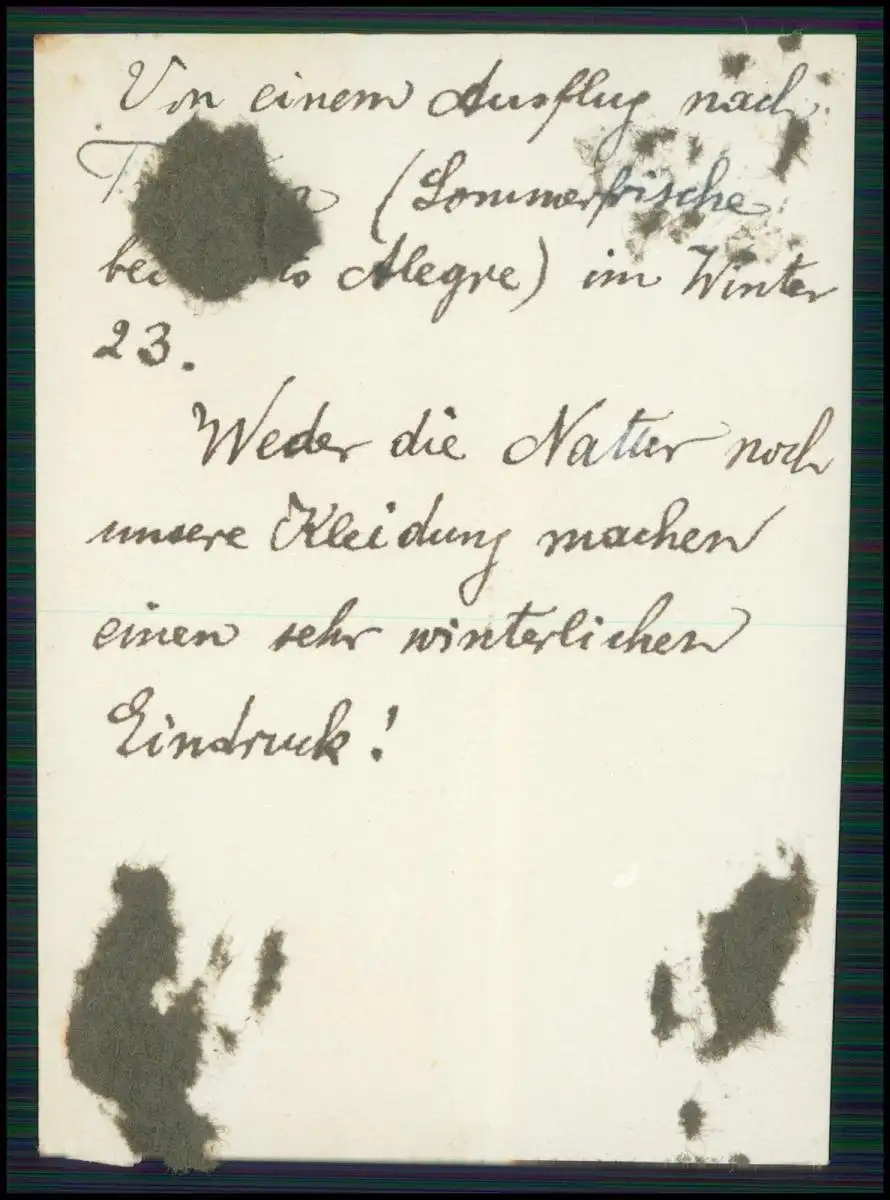 Von einem Ausflug nach
(Sommerfrische
Alegre) im Winter
23.
Weder die Natur noch
unsere Kleidung machen
einen sehr winterlichen
Eindruck!